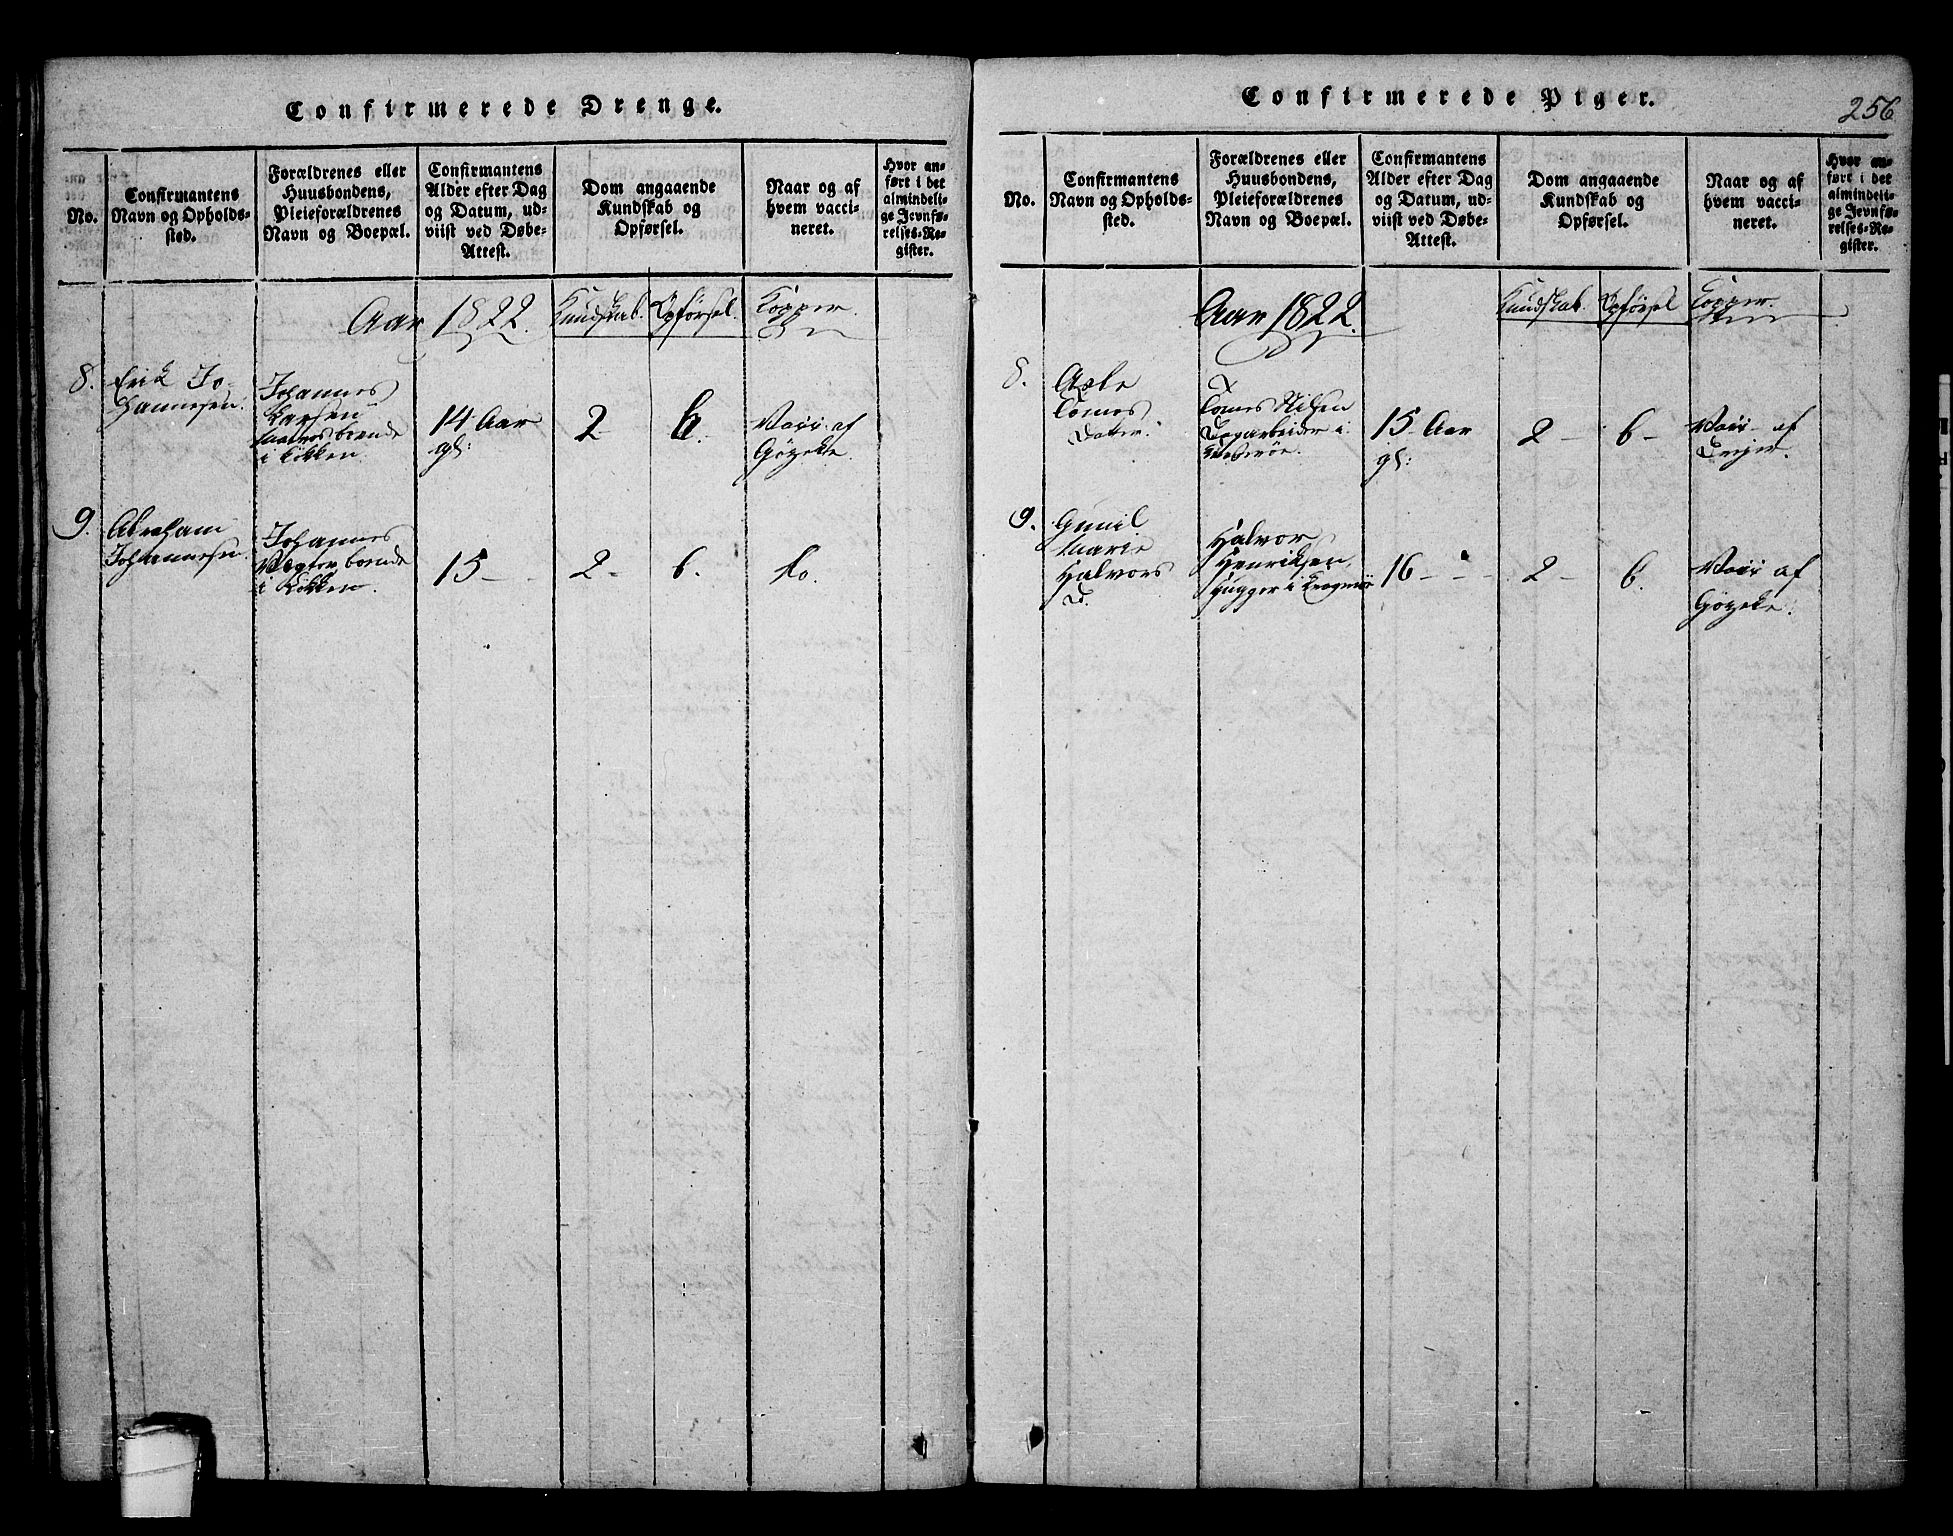 Confirmerede Drenge.
No.
Confirmantens
Navn og Opholds-
sted.
Forældrenes eller
Huusbondens,
Pleieforældrenes
Navn og Boepæl.
Confirmantens
Alder efter Dag
og Datum, ud-
viist ved Døbe-
Attest.
Dom angaaende
Kundskab og
Opførsel.
Naar og af
hvem vacci-
neret.
Hvor an-
ført i det
almindeli-
ge Jevnfø-
relses-Re-
gister.
Aar 1822.
Kundskab.
Opførsel.
Kopper.
8.
Erik Jo-
hannesen.
Johannes
Larsen
boende
i Kikken.
14 Aar
gl:
2
6.
Vacc. af
Gøgete.
9.
Abraham
Johannesen
Johannes
boende
i Kikken.
15 –
2 –
6.
do.
Confirmerede Piger.
256
No.
Confirmantens
Navn og Opholds-
sted.
Forældrenes eller
Huusbondens,
Pleieforældrenes
Navn og Boepæl.
Confirmantens
Alder efter Dag
og Datum, ud-
viist ved Døbe-
Attest.
Dom angaaende
Kundskab og
Opførsel.
Naar og af
hvem vacci-
neret.
Hvor an-
ført i det
almindeli-
ge Jevnfø-
relses-Re-
gister.
Aar 1822.
Kundskab.
Opførsel
Kopper.
8.
Asle
Tomes
Datter.
Tomes Nilsen
Dagarbeider i
15 Aar
gl:
2 –
6 –
Vacc. af
9.
Gunil
Marie
Halvors
D.
Halvor
Henriksen,
Hugger i Kragerøe
16 – –
2 –
6.
Vacc af
Gøgete.